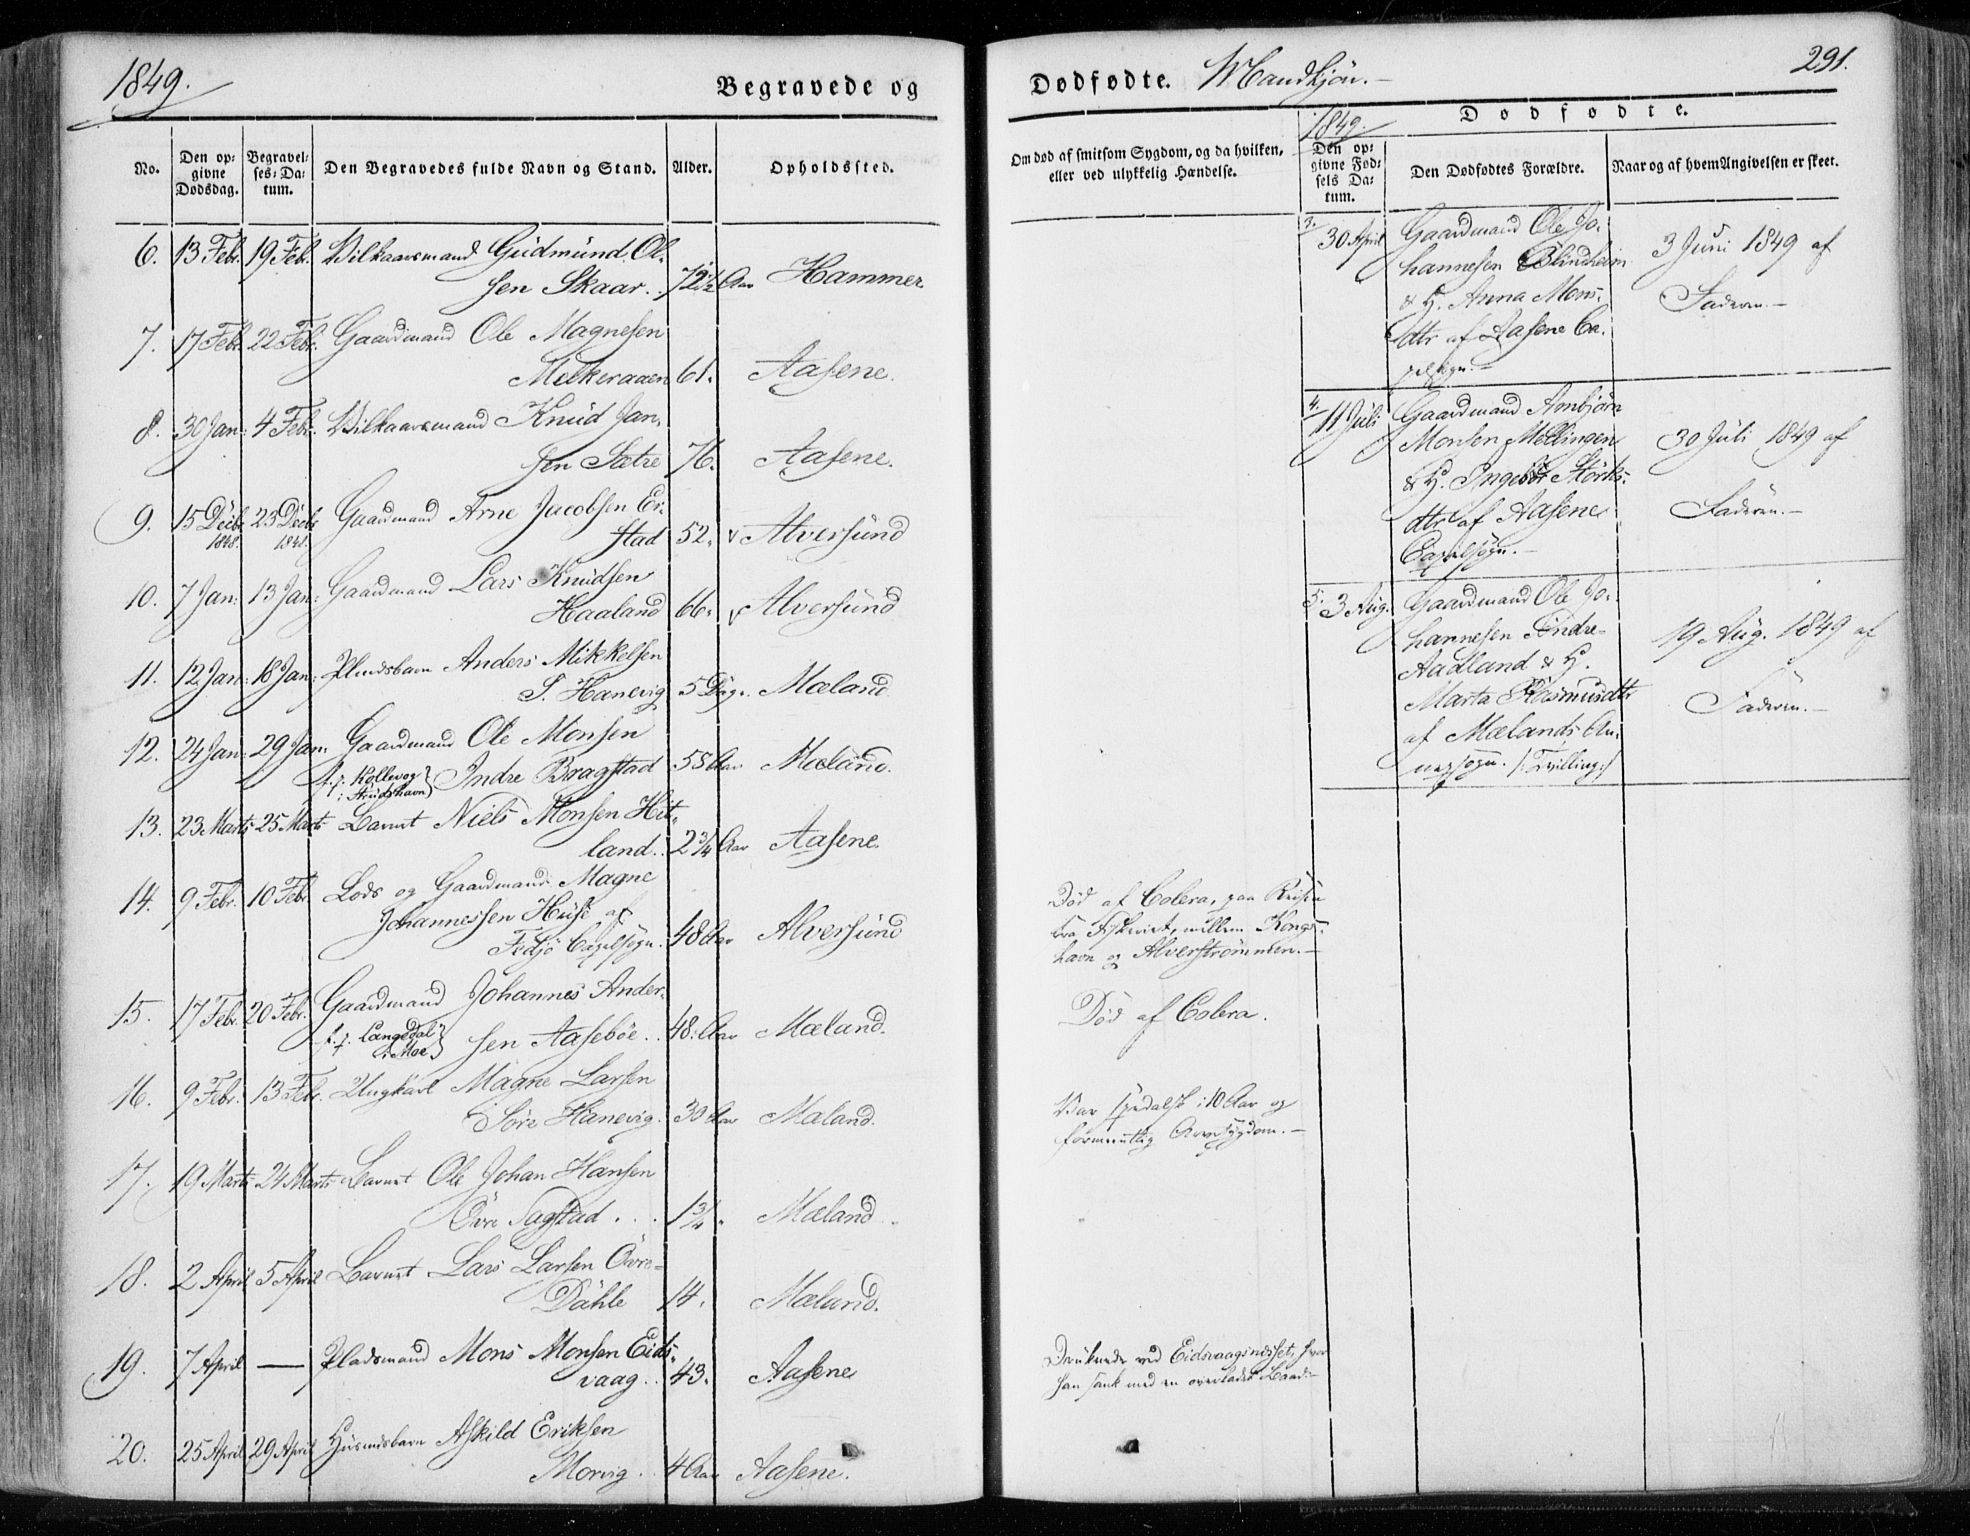 1849.
Begravede og
Dødfødte. Mandkjön.
291.
No.
Den opgivne Dødsdag.
Begravelses-Datum.
Den Begravedes fulde Navn og Stand.
Alder.
Opholdssted.
Om død af smitsom Sygdom, og da hvilken,
eller ved ulykkelig Hændelse.
1849.
Dødfødte.
Den opgivne Fødsels Datum.
Den Dødfødtes Forældre.
Naar og af hvem Angivelsen er skeet.
6. 13 Febr. 19 Febr. Vilkaarsmand Gudmund Ol-
sen Skaar. 72½ Aar Hammer
7. 17 Febr. 22 Febr. Gaardmand Ole Magnesen
Melkeraaen 61. Aasene.
8. 30 Jan: 4 Febr. Vilkaarsmand Knud Jan-
sen Sætre 76. Aasene.
9. 15 Decbr 1848. 23 Decbr 1848. Gaardmand Arne Jacobsen Ei-
stad 52. Alversund
10. 7 Jan: 13 Jan: Gaardmand Lars Knudsen
Haaland 66. Alversund
11. 12 Jan: 18 Jan: Pladsbarn Anders Mikkelsen
S. Hanevig 5 Dage. Mæland
12. 24 Jan: 29 Jan: Gaardmand Ole Monsen
Kollevog Indre Bragstad 55 Aar Mæland.
13. 23 Marts 25 Marts Barnet Niels Monsen Hit-
land. 2¾ Aar Aasene.
14. 9 Febr. 10 Febr. Lods og Gaardmand Magne
Johannessen Huse af
Fedjö Capelsogn. 48 Aar Alversund
Død af Colera, paa Reisen
fra Fiskeriet, mellem Kongs-
havn og Alverstrømmen.
15. 17 Febr. 20 Febr. Gaardmand Johannes Ander-
f. p. Langedal i Moe sen Aaseböe. 48. Aar Mæland.
Død af Colera.
16. 9 Febr. 13 Febr. Ungkarl Magne Larsen
Söre Hanevig. 30 Aar Mæland.
Var spedalsk i 10 Aar og
formeentlig Arvesygdom.
17. 19 Marts 24 Marts Barnet Ole Johan Hansen
Övre Sagstad. 1¾. Mæland
18. 2 April 5 April Barnet Lars Larsen Övre-
Dahle 14. Mæland.
19. 7 April — Pladsmand Mons Monsen Eids-
vaag. 43. Aasene
Druknede ved Eidsvaagsnesset, hvor
han sank med en overladet Baad.
20. 25 April 29 April Huusmdsbarn Askild Eriksen
Morvig. 4 Aar Aasene.
3. 30 April Gaardmand Ole Jo-
hannesen Blindheim
& H. Anna Mons-
dtr af Aasene Ca-
pelsogn.
3 Juni 1849 af
Faderen.
4. 11 Juli Gaardmand Arnbjørn
Monsen Mellingen
& H. Ingebor Störks-
dtr af Aasene
Capelsogn.
30 Juli 1849 af
Faderen.
5. 3 Aug. Gaardmand Ole Jo-
hannesen Indre-
Aadland & H.
Marta Rasmusdtr
af Mælands An-
nexsogn. /: Tvilling:/
19 Aug. 1849 af
Faderen.